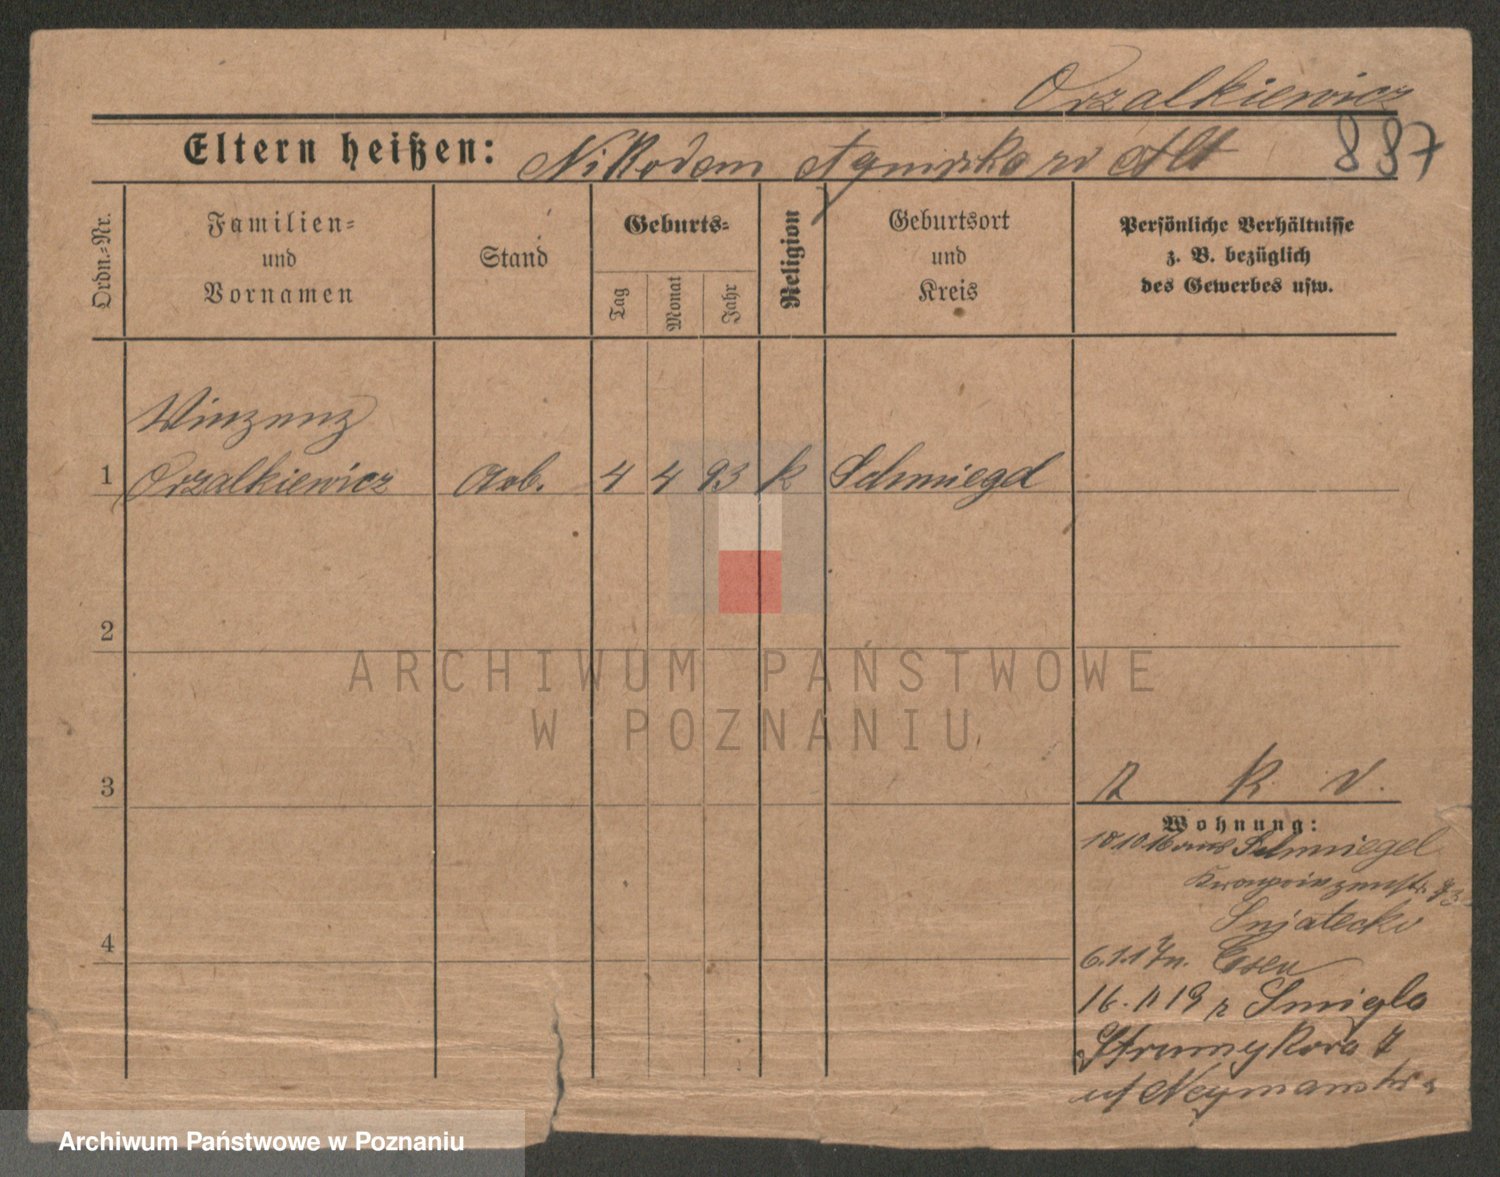 Orzalkiewicz
Eltern heißen: Nikodem Agniszka
887
Ordn.-Nr.
Familien-
und
Vornamen
Stand
Geburts-
Tag
Monat
Jahr
Religion
Geburtsort
und
Kreis
Persönliche Verhältnisse
z. B. bezüglich
des Gewerbes usw.
Winzenz
1 Orzalkiewicz Arb. 4 4 93 k Schmiegel
2
ARCHIWUM PAŃSTWOWE
W POZNANIU
3
R. V.
Wohnung:
18 10 16 aus Schmiegel
Kronprinzenstr. 93
Snjatecki
4
6.1.17 n. Essen
16. 11 19 Smigla
Strumykowa 7
Archiwum Państwowe w Poznaniu